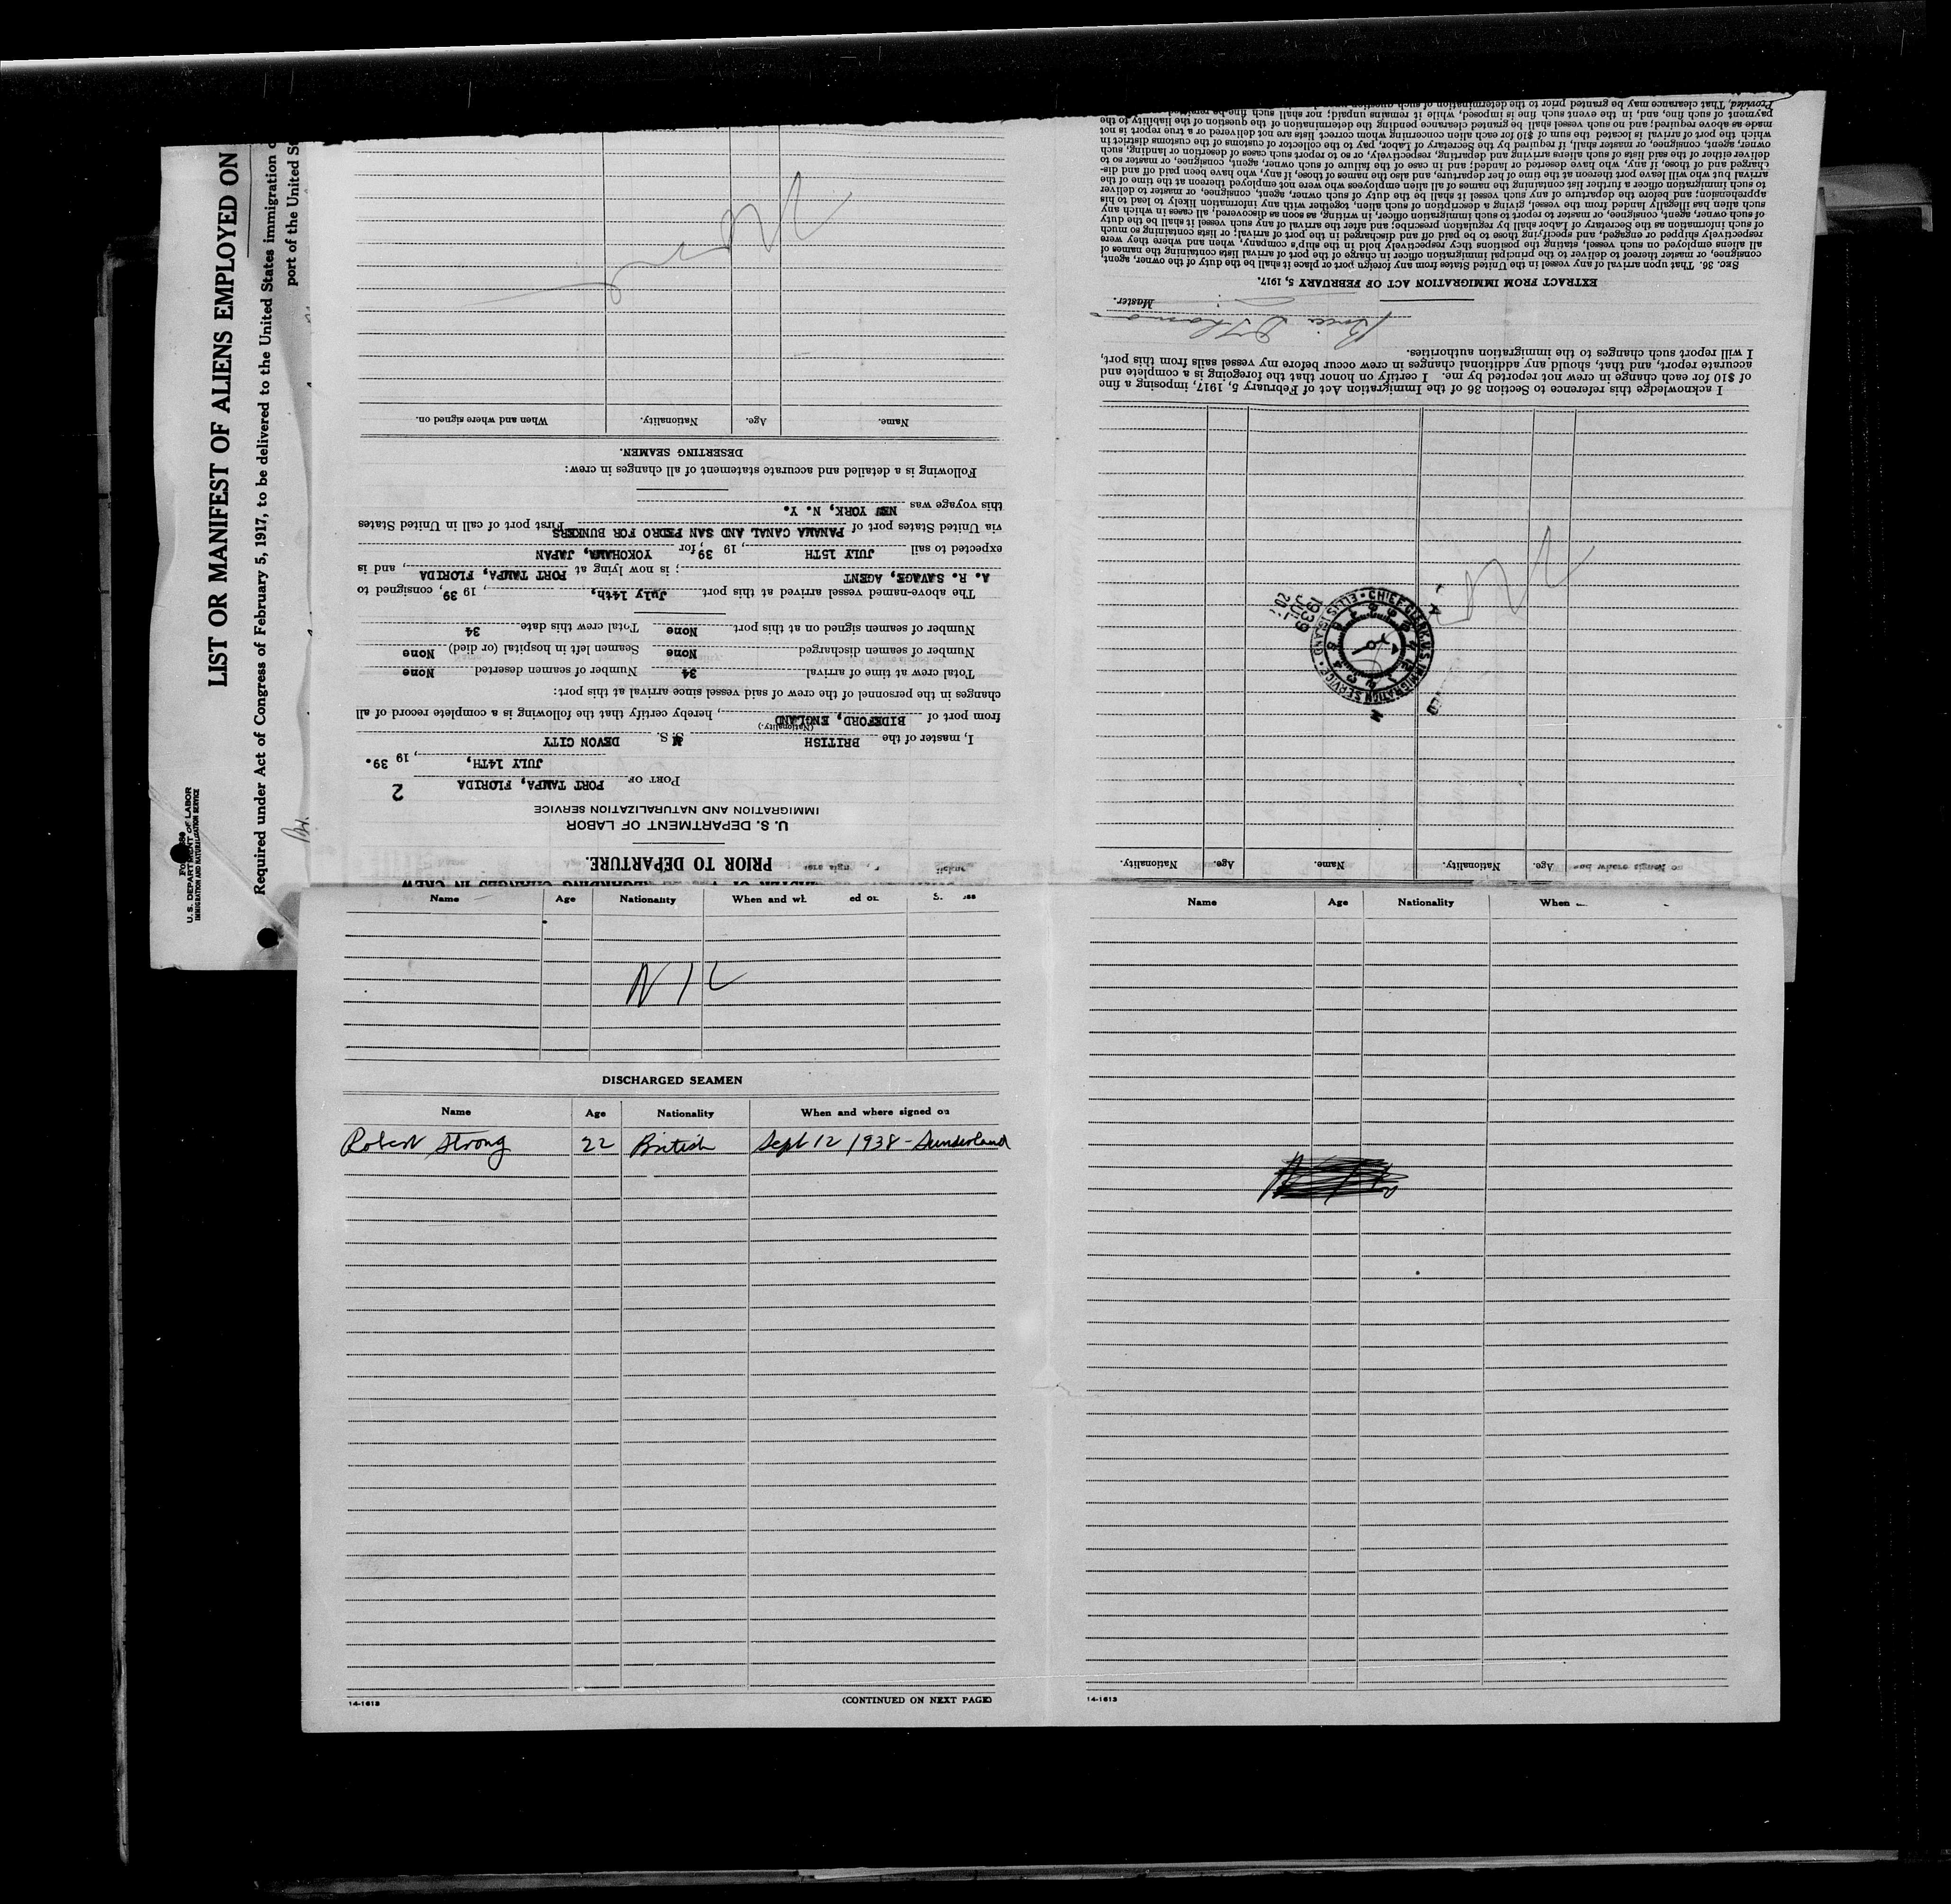 LIST OR MANIFEST OF ALIENS EMPLOYED ON
Required under Act of Congress of February 5, 1917, to be delivered to the United States immigration
port of the United
U. S. DEPARTMENT OF LABOR
IMMIGRATION AND NATURALIZATION SERVICE
PRIOR TO DEPARTURE.
U. S. DEPARTMENT OF LABOR
IMMIGRATION AND NATURALIZATION SERVICE
2
PORT OF PORT TAMPA, FLORIDA
JULY 14TH, , 19 39.
I, master of the BRITISH S. DEVON CITY
(Nationality.)
from port of BIDEFORD, ENGLAND, hereby certify that the following is a complete record of all
changes in the personnel of the crew of said vessel since arrival at this port:
Total crew at time of arrival 34 Number of seamen deserted None
Number of seamen discharged None Seamen left in hospital (or died) None
Number of seamen signed on at this port None Total crew this date 34
The above-named vessel arrived at this port July 14th, , 19 39, consigned to
A. R. SAVAGE, AGENT ; is now lying at PORT TAMPA, FLORIDA, and is
expected to sail JULY 15TH , 19 39, for YOKOHAMA, JAPAN
via United States port of PANAMA CANAL AND SAN PEDRO FOR BUNKERS First port of call in United States
this voyage was NEW YORK, N. Y.
Following is a detailed and accurate statement of all changes in crew:
DESERTING SEAMEN.
Name. Age. Nationality. When and where signed on.
Nil
and where signed on Age. Nationality. Name. Age. Nationality.
CHIEF CLERK U.S. IMMIGRATION SERVICE • ELLIS ISLAND •
1939 JUL 20
Nil
I acknowledge this reference to Section 36 of the Immigration Act of February 5, 1917, imposing a fine
of $10 for each change in crew not reported by me. I certify on honor that the foregoing is a complete and
accurate report, and that, should any additional changes in crew occur before my vessel sails from this port,
I will report such changes to the immigration authorities.
Master.
EXTRACT FROM IMMIGRATION ACT OF FEBRUARY 5, 1917.
SEC. 36. That upon arrival of any vessel in the United States from any foreign port or place it shall be the duty of the owner, agent,
consignee, or master thereof to deliver to the principal immigration officer in charge of the port of arrival lists containing the names of
all aliens employed on such vessel, stating the positions they respectively hold in the ship's company, when and where they were
respectively shipped or engaged, and specifying those to be paid off and discharged in the port of arrival; or lists containing so much
of such information as the Secretary of Labor shall by regulation prescribe; and after the arrival of any such vessel it shall be the duty
of such owner, agent, consignee, or master to report to such immigration officer, in writing, as soon as discovered, all cases in which any
such alien has illegally landed from the vessel, giving a description of such alien, together with any information likely to lead to his
apprehension; and before the departure of any such vessel it shall be the duty of such owner, agent, consignee, or master to deliver
to such immigration officer a further list containing the names of all alien employees who were not employed thereon at the time of the
arrival but who will leave port thereon at the time of her departure, and also the names of those, if any, who have been paid off and dis-
charged and of those, if any, who have deserted or landed; and in case of the failure of such owner, agent, consignee, or master so to
deliver either of the said lists of such aliens arriving and departing, respectively, or so to report such cases of desertion or landing, such
owner, agent, consignee, or master shall, if required by the Secretary of Labor, pay to the collector of customs of the customs district in
which the port of arrival is located the sum of $10 for each alien concerning whom correct lists are not delivered or a true report is not
made as above required; and no such vessel shall be granted clearance pending the determination of the question of the liability to the
payment of such fine, and, in the event such fine is imposed, while it remains unpaid; nor shall such fine be remitted
Provided, That clearance may be granted prior to the determination of such question
Name Age Nationality When and
NIL
DISCHARGED SEAMEN
Name Age Nationality When and where signed on
Robert Strong 22 British Sept 12 1938 - Sunderland
14-1613 (CONTINUED ON NEXT PAGE)
Name Age Nationality When
14-1613